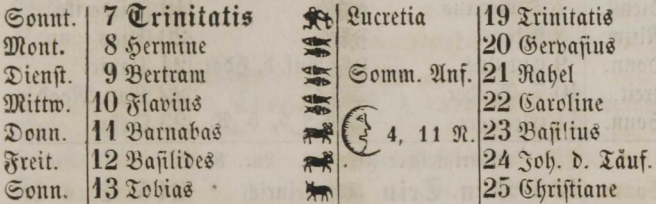 Sonnt. 7 Trinitatis Lucretia 19 Trinitatis
Mont. 8 Hermine 20 Gervasius
Dienst. 9 Bertram Somm. Anf. 21 Rahel
Mittw. 10 Flavius 22 Caroline
Donn. 11 Barnabas 4, 11 N. 23 Basilius
Freit. 12 Basilides 24 Joh. d. Täuf.
Sonn. 13 Tobias 25 Christiane